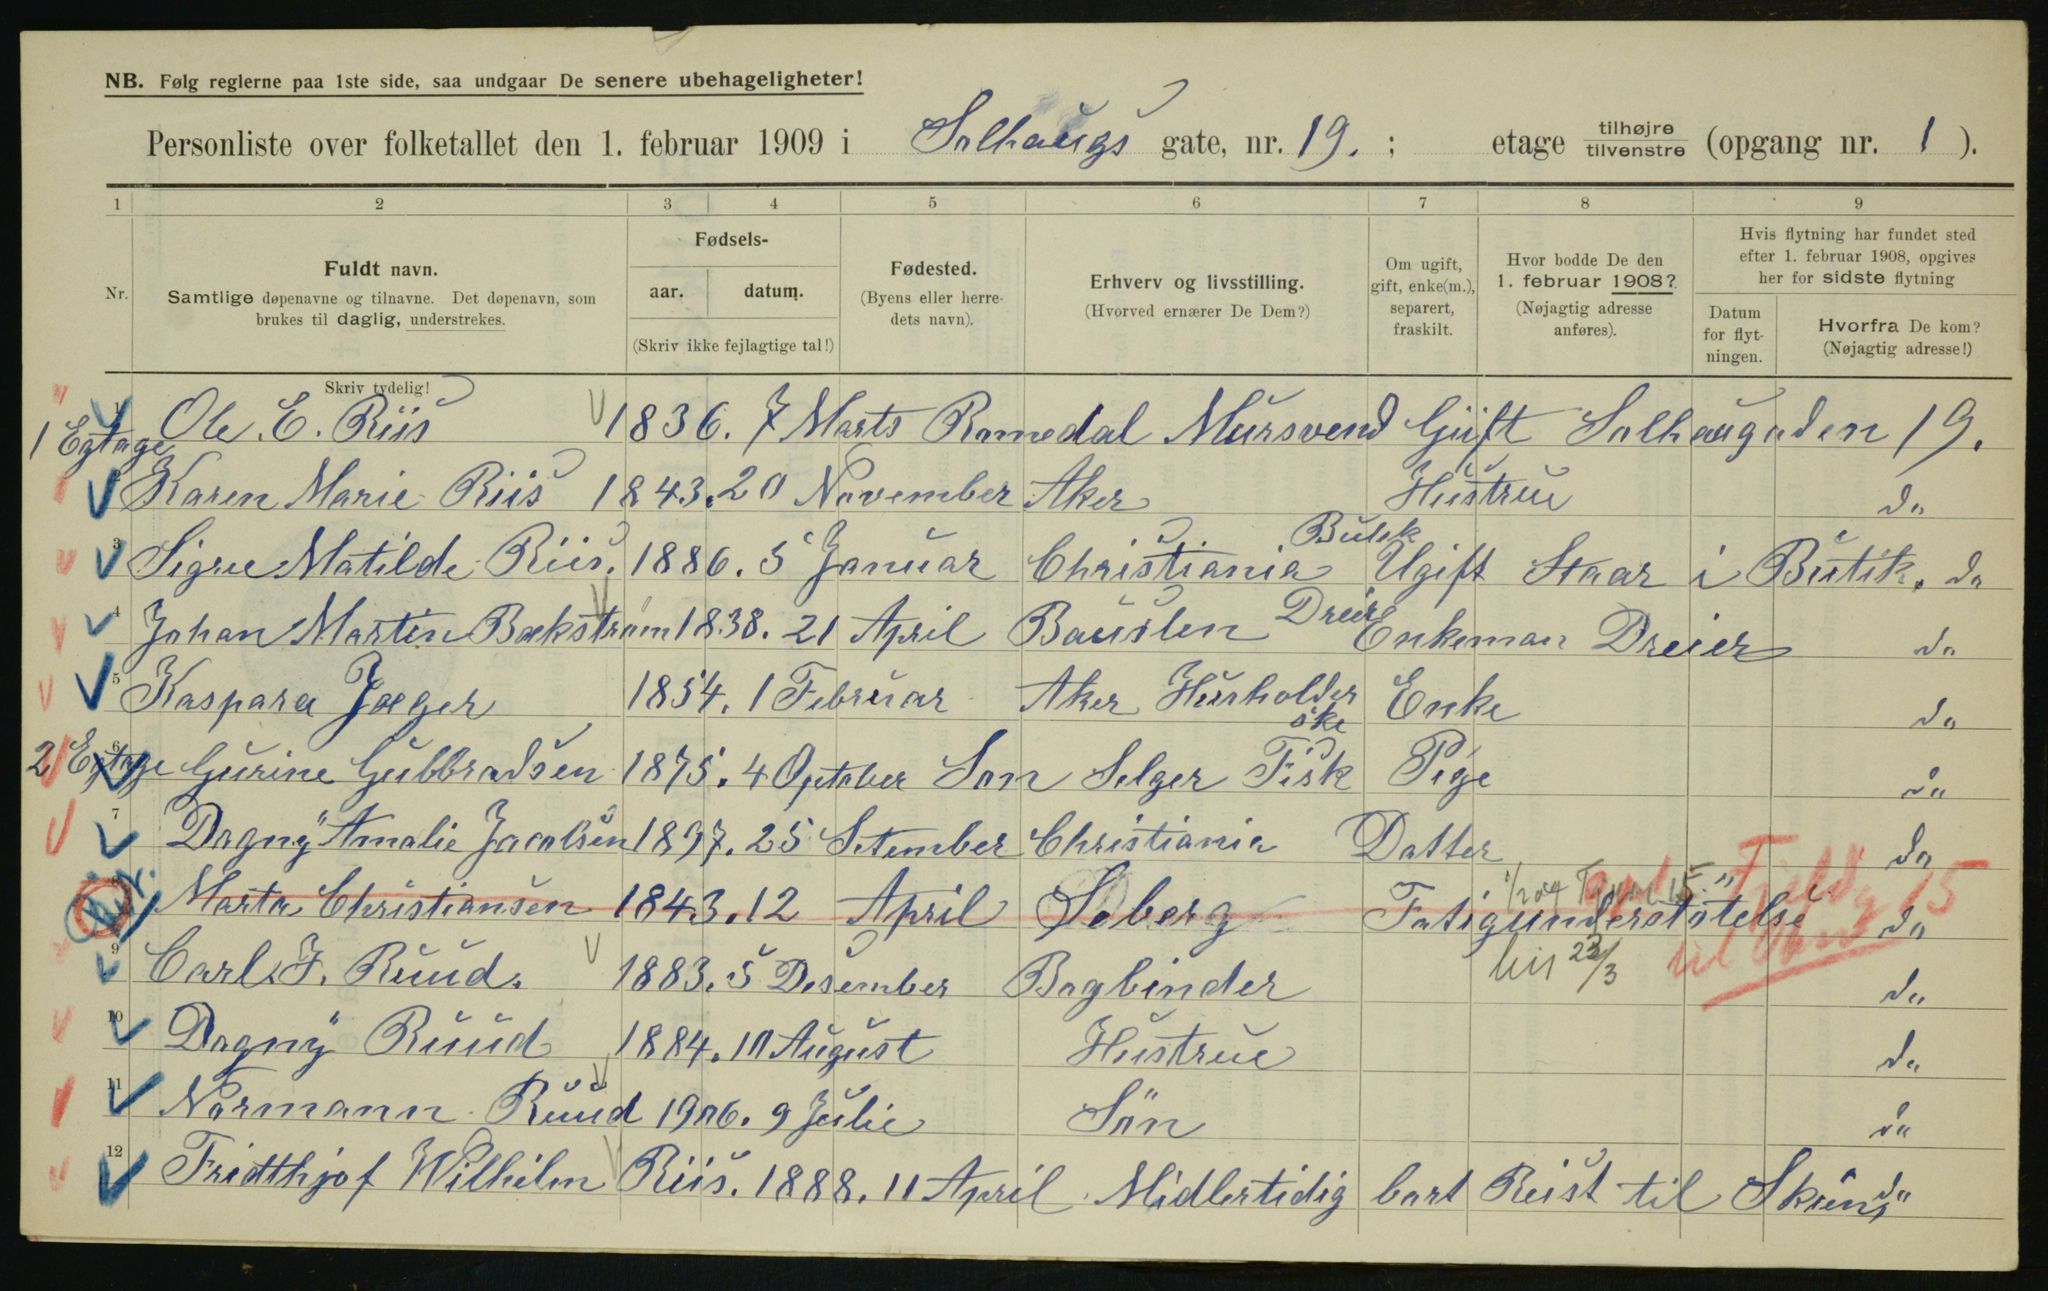 NB. Følg reglerne paa 1ste side, saa undgaar De senere ubehageligheter!
Personliste over folketallet den 1. februar 1909 i Solhaugs gate, nr. 19. ; etage tilhøjre tilvenstre (opgang nr. 1 ).
1 2 3 4 5 6 7 8 9
Nr.
Fuldt navn.
Samtlige døpenavne og tilnavne. Det døpenavn, som
brukes til daglig, understrekes.
Skriv tydelig!
Fødsels-
aar. datum.
(Skriv ikke fejlagtige tal!)
Fødested.
(Byens eller herre-
dets navn).
Erhverv og livsstilling.
(Hvorved ernærer De Dem?)
Om ugift,
gift, enke(m.),
separert,
fraskilt.
Hvor bodde De den
1. februar 1908?
(Nøjagtig adresse
anføres).
Hvis flytning har fundet sted
efter 1. februar 1908, opgives
her for sidste flytning
Datum
for flyt-
ningen.
Hvorfra De kom?
(Nøjagtig adresse!)
1 Egtage
1 Ole. E. Riis 1836. 7 Marts Romedal Mursvend Gift Solhaugaden 19.
2 Karen Marie Riis 1843. 20 November Aker Hustrue do
3 Sigru Matilde Riis. 1886. 5 Januar Christiania Butik Ugift Staar i Butik. do
4 Johan Martin Bækstrøm 1838. 21 April Bauslen Dreier Enkeman Dreier do
5 Kaspara Jæger 1854. 1 Februar Aker Husholderske Enke do
2 Egtage
6 Gurine Gubbradsen 1875. 4 Optober Son Selger Fisk Pige do
7 Dagny Amalie Jacobsen 1897. 25 Setember Christiania Datter do
8 Marta Christiansen 1843. 12 April Soberg Fatigunderstøtelse do
15
23/3
9 Carl. F. Ruud. 1883. 5 Desember Bogbinder do
10 Dagny Ruud 1884. 10 August Hustrue do
11 Normann Ruud 1906. 9 Julie Sön do
12 Fridtthjof Wilhilm Riis. 1888. 11 April Midlertidig bort Reist til Skien, do